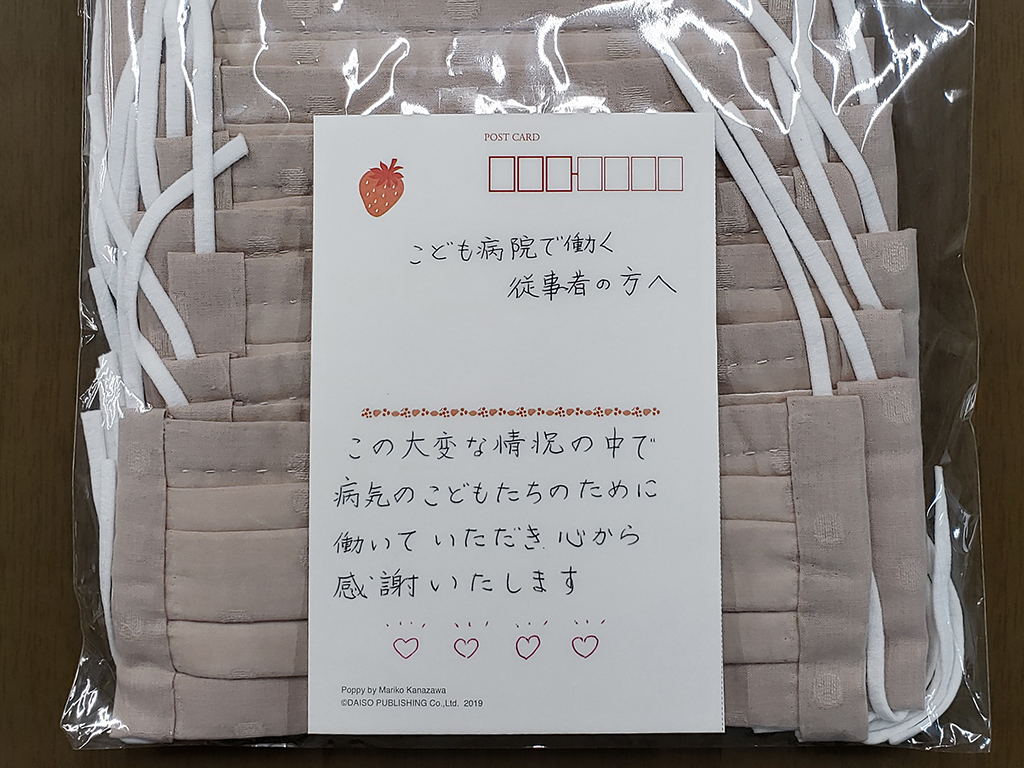 POST CARD
こども病院で働く
従事者の方へ
この大変な情況の中で
病気のこどもたちのために
働いていただき 心から
感謝いたします
Poppy by Mariko Kanazawa
©DAISO PUBLISHING Co.,Ltd. 2019